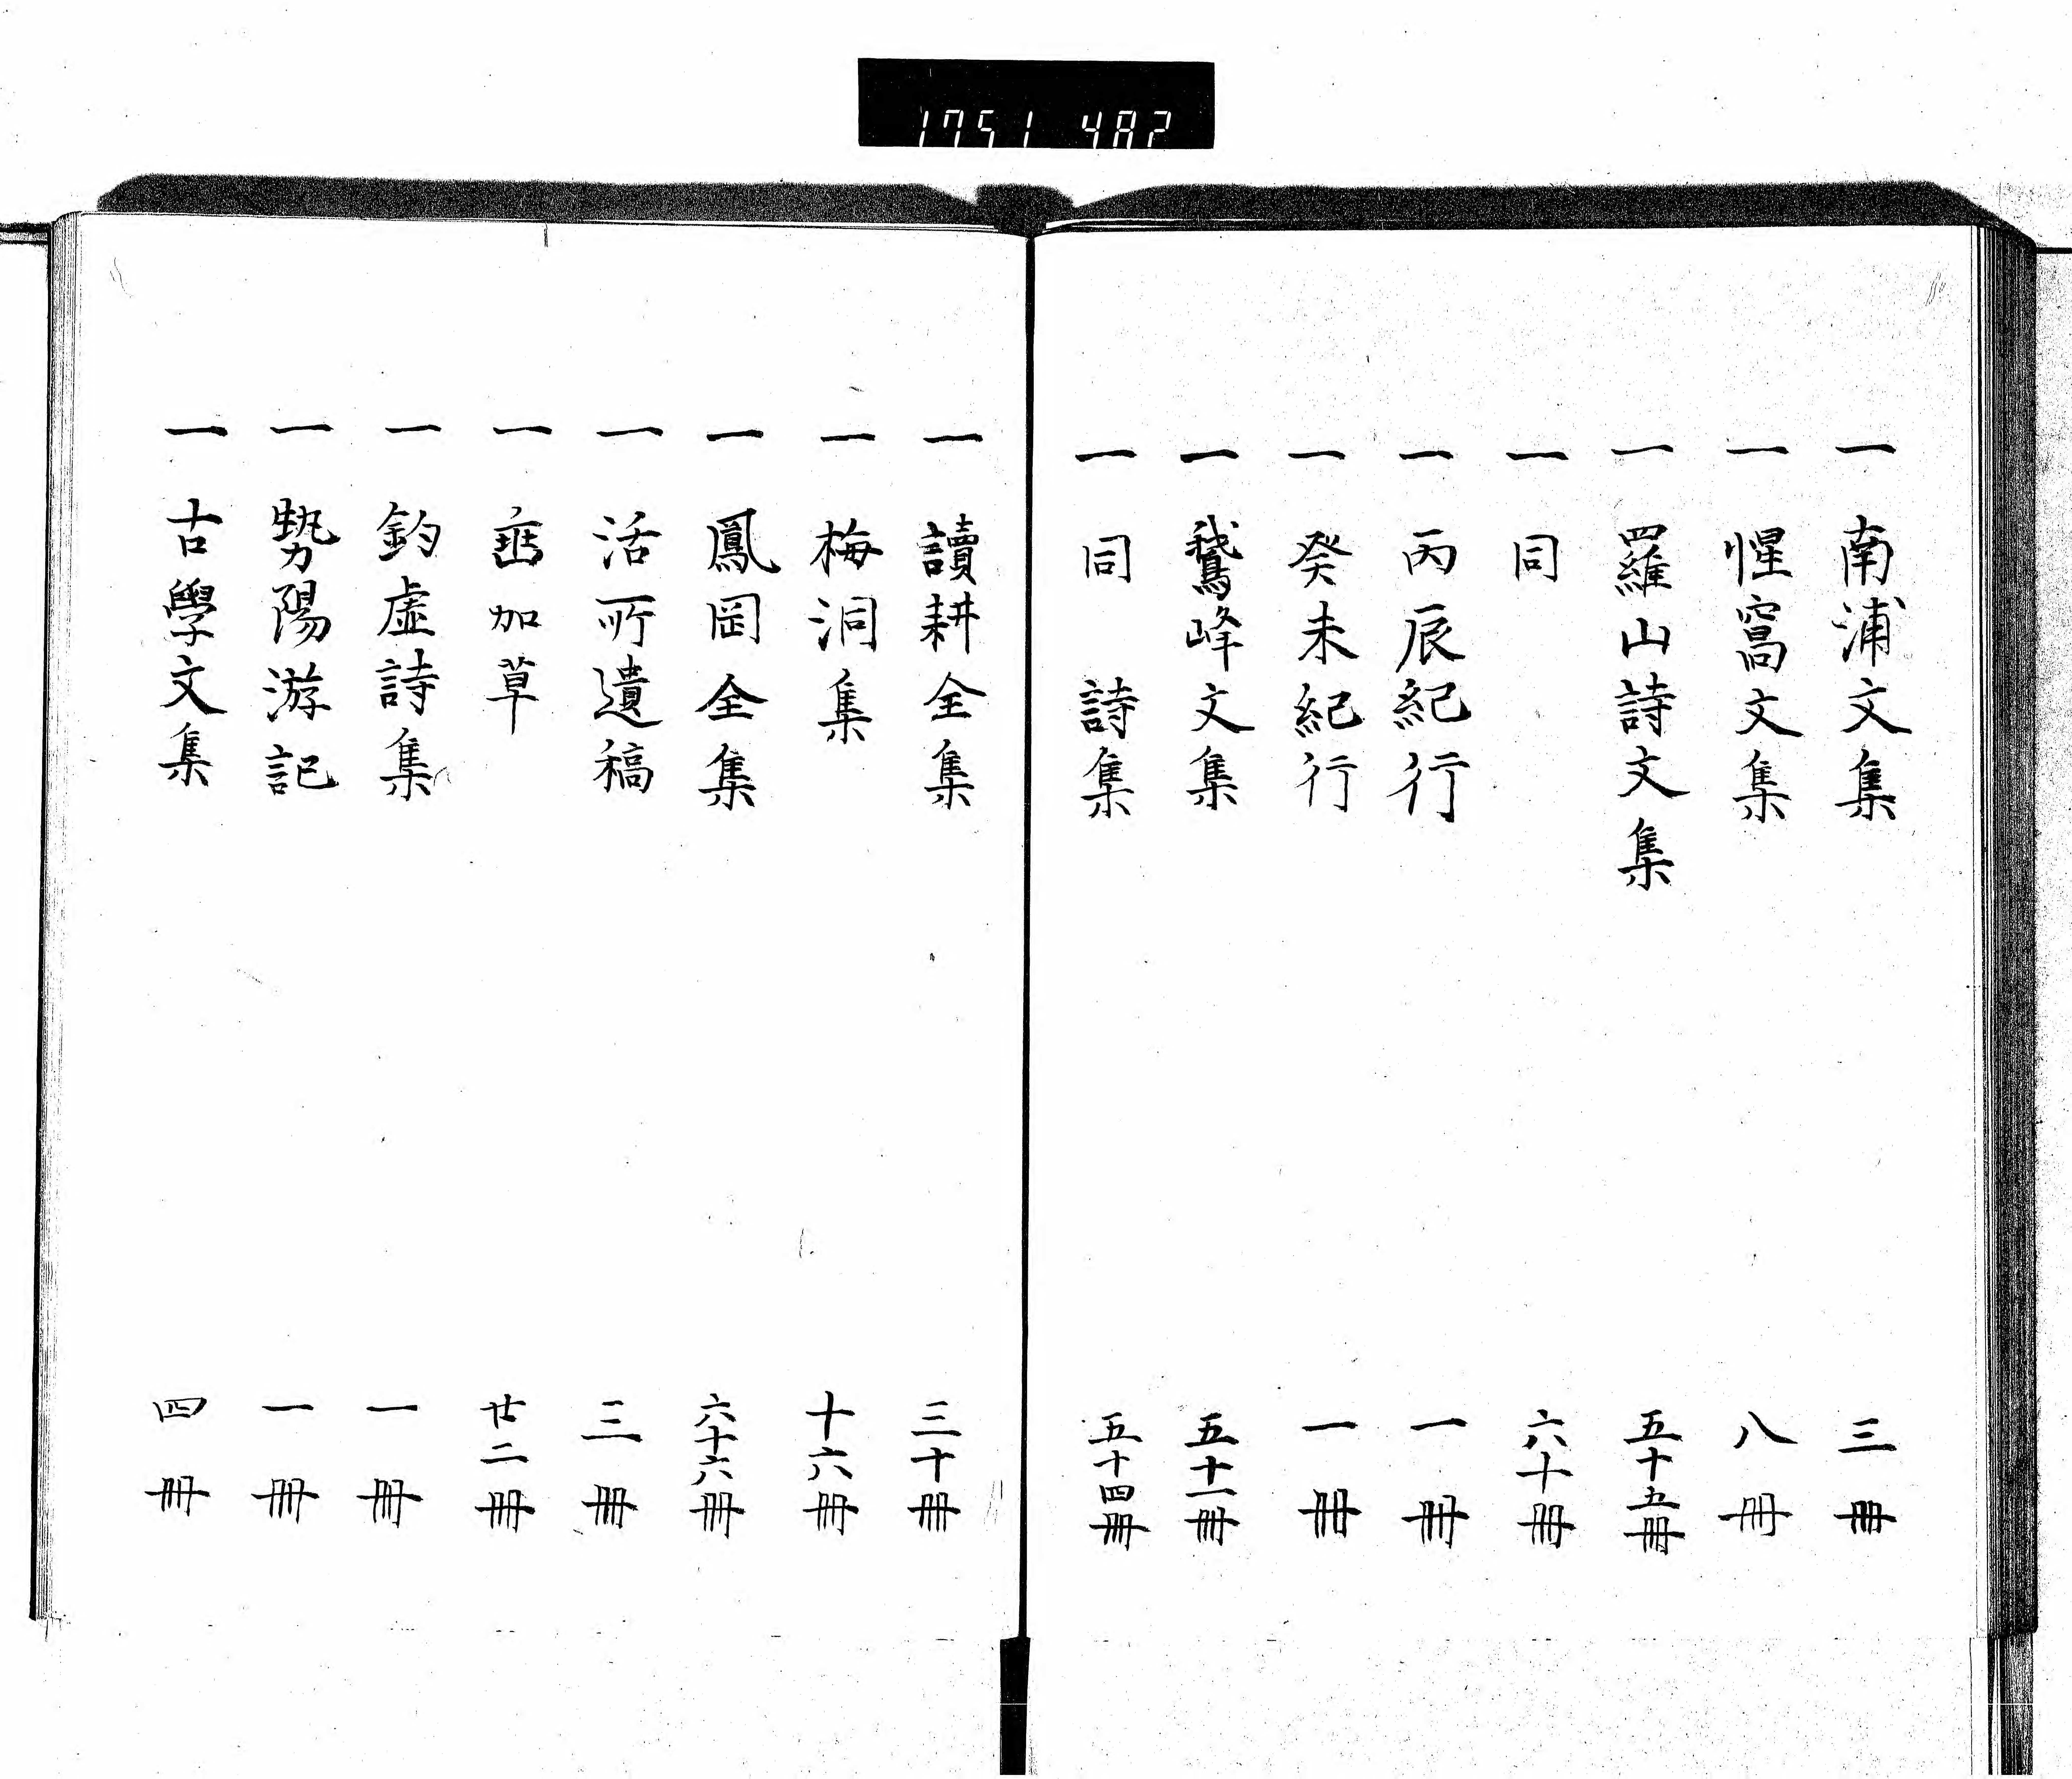 1751 482
一 南浦文集 三冊
一 惺窩文集 八冊
一 羅山詩文集 五十五冊
一 同 六十冊
一 丙辰紀行 一冊
一 癸未紀行 一冊
一 鵞峰文集 五十一冊
一 同 詩集 五十四冊
一 讀耕全集 三十冊
一 梅洞集 十六冊
一 鳳岡全集 六十六冊
一 活所遺稿 三冊
一 垂加草 廿二冊
一 釣虚詩集 一冊
一 勢陽游記 一冊
一 古學文集 四冊